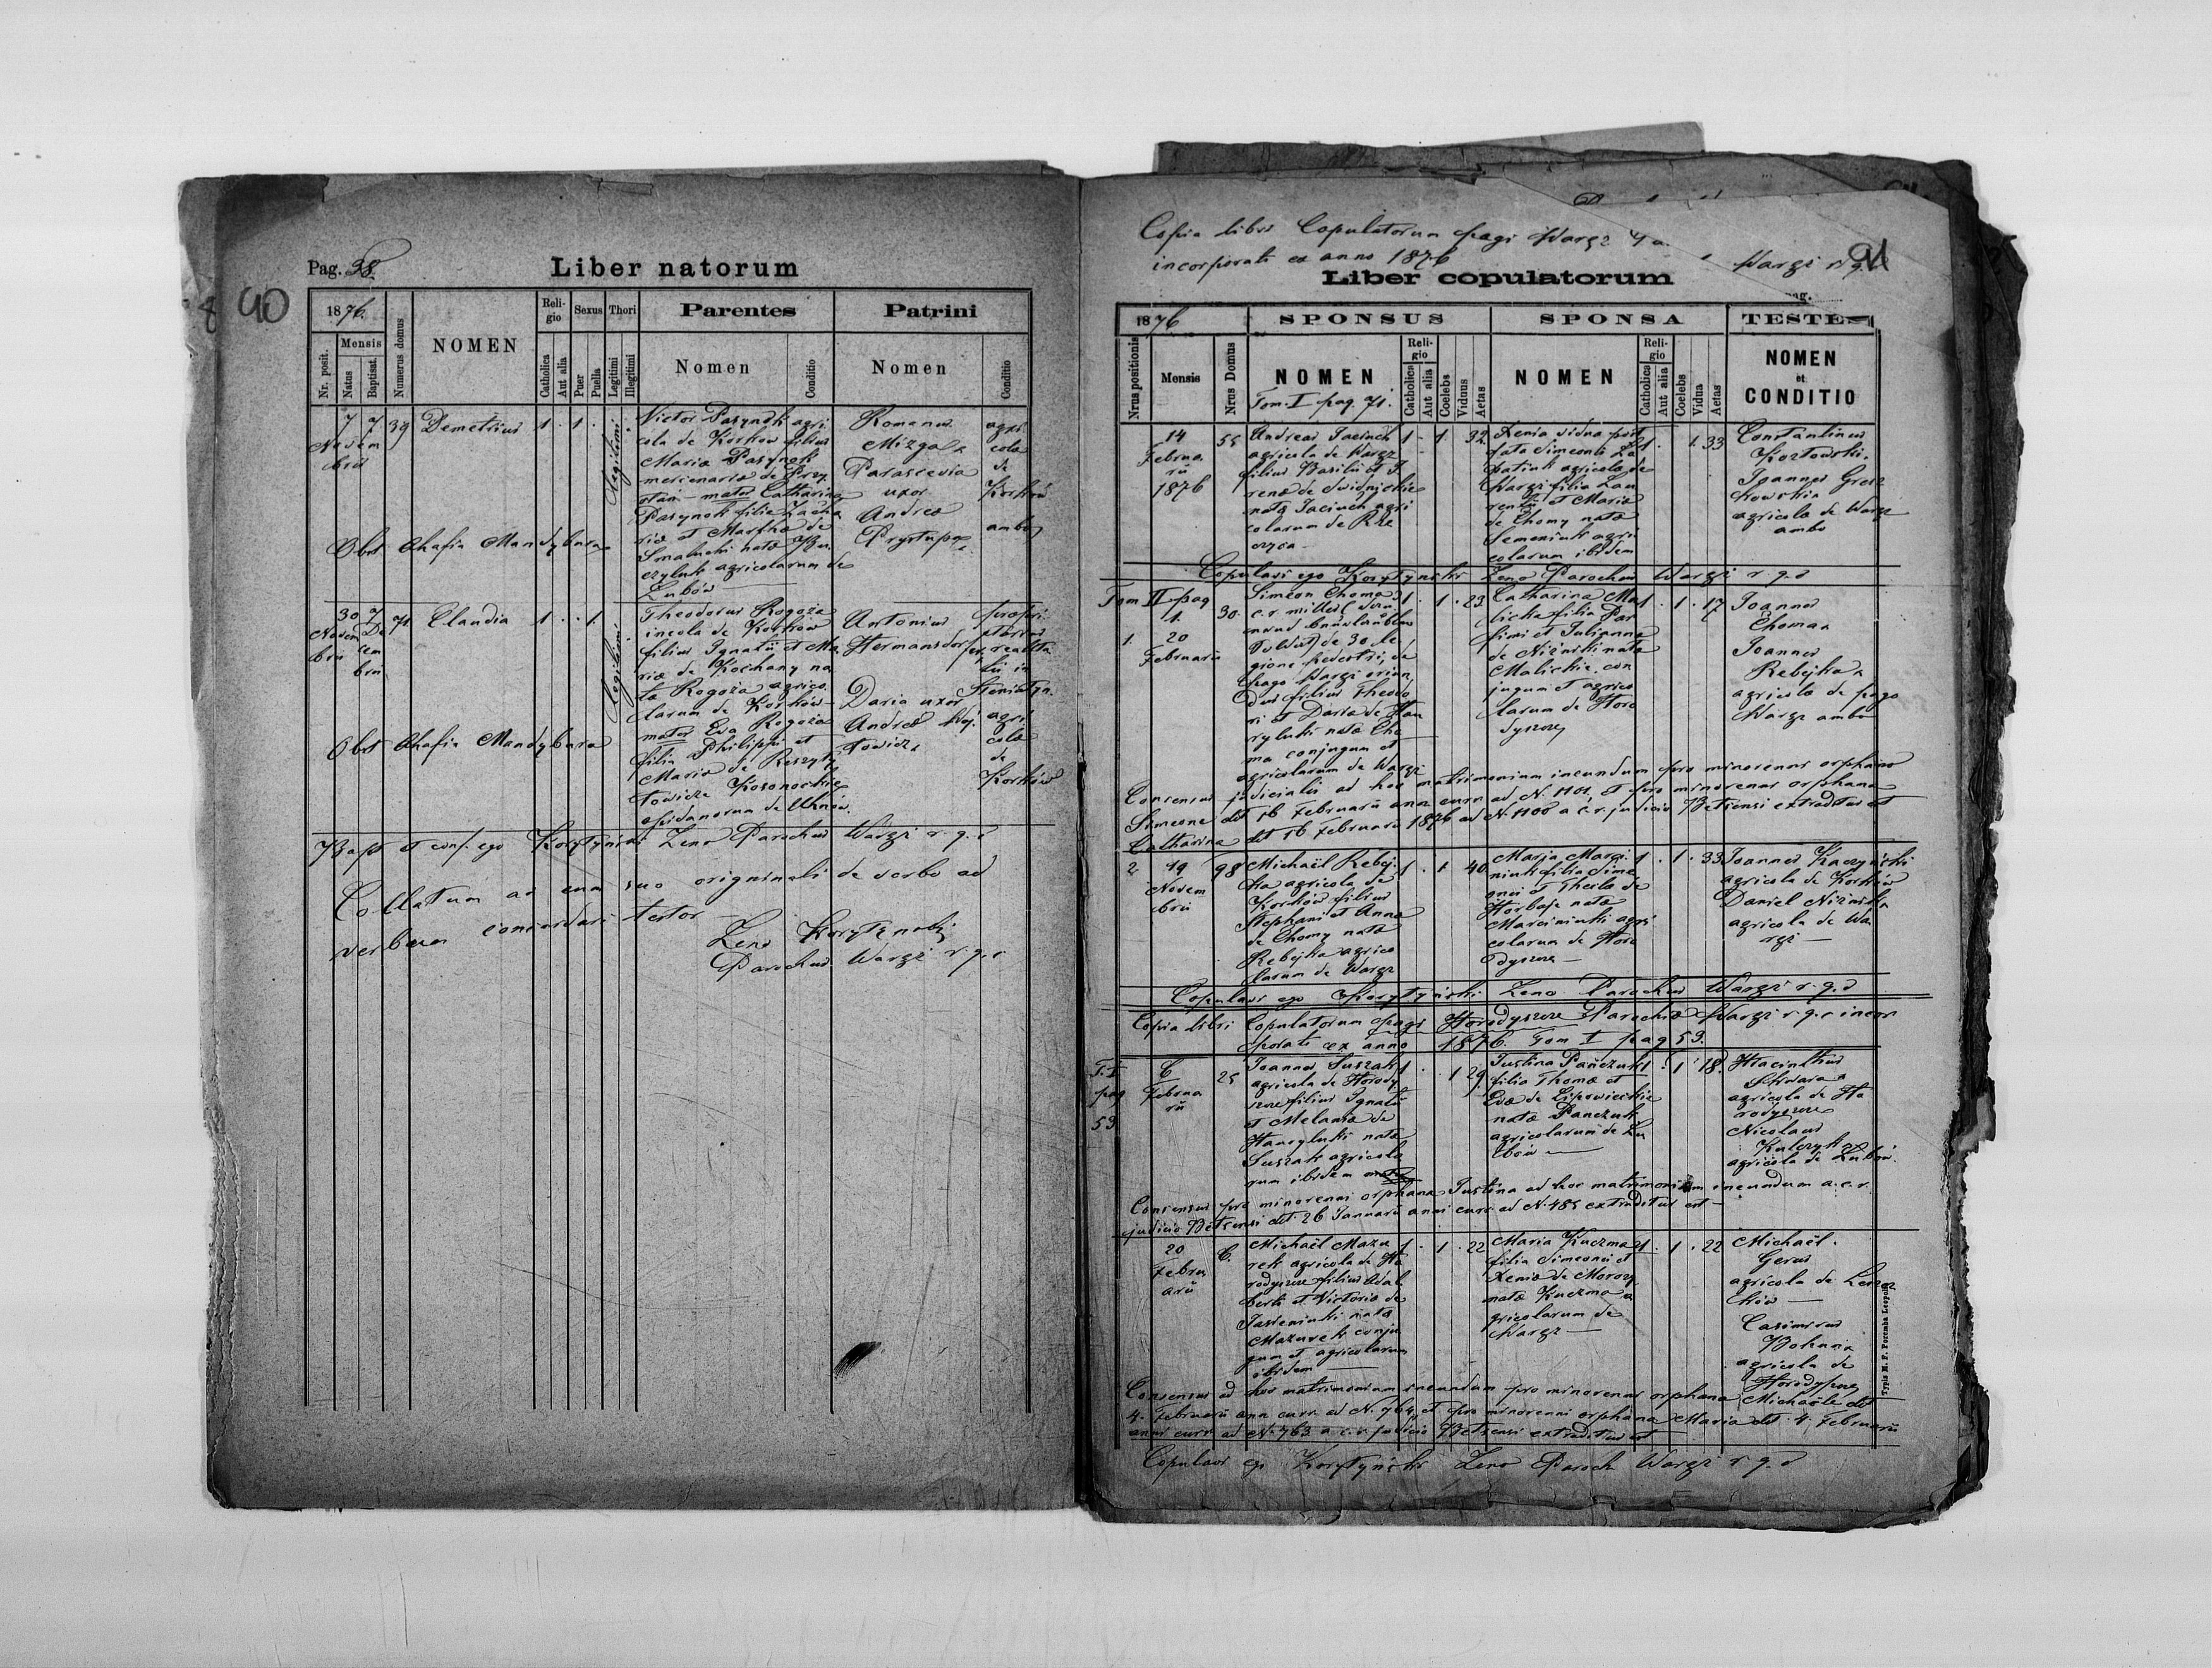 Pag. 38.
Liber natorum
40
1876.
Mensis
Nr. posit.
Natus
Baptisat.
Numerus domus
NOMEN
Reli-
gio
Catholica
Aut alia
Sexus
Puer
Puella
Thori
Legitimi
Illegitimi
Parentes
Nomen
Conditio
Patrini
Nomen
Conditio
7 7 39 Demetrius 1 . 1 .
Novem
bris
Legitimi
Victor Pasynok agri
cola de Korków filius
Maria Pasynok
mercenaria de Przy
mater Catharina
Pasynok filia Zacha
ria et Martha de
Smaluchi nata
agricolarum de
Lubów
Romanus
Mizgala
Parascevia
uxor
Andrea
Prystupa
agri
cola
de
Korków
ambo
Obst Ahafia Mandybura
30 7 71 Claudia 1 . . 1
Novem De
bris cem
bris
Legitimi
Theodorus Rogoza
incola de Korków
filius Ignatii et Ma
ria de Kochany na
ta Rogoza agrico
larum de Korków
mater Eva Rogoza
filia Philippi et
Maria de
towicze
opidanorum de Uhnów
Antonius
Hermansdorfer
Daria uxor
Andrea Woj
towicz
propri
etarius
realita
tis in
Steniatyn
agri
cola
de
Korków
Obst Ahafia Mandybura
Bapt et conf. ego Korytyński Zeno Parochus Waręż r. g. c
Collatum ac cum suo originali de verbo ad
verbum concordari testor
Zeno Korytynski
Parochus Waręż r. g. c
Copia libri Copulatorum pagi Waręż
incorporati ex anno 1876
Waręż r. g.
91
Liber copulatorum
pag.
1876
SPONSUS
SPONSA
TESTES
Nrus positionis
Mensis
Nrus Domus
NOMEN
Tom. I pag. 71.
Reli-
gio
Catholica
Aut alia
Coelebs
Viduus
Aetas
NOMEN
Reli-
gio
Catholica
Aut alia
Coelebs
Vidua
Aetas
NOMEN
et
CONDITIO
14
Februa
rii
1876
55
Andreas Jaciuch
agricola de Waręż
filius Basilii et I
rena de Swidnickie
nata Jaciuch agri
colarum de Rze
czyca
1 . 1 . 32
Xenia vidua post
fata Simeonis La
patiuk agricola de
Waręż filia Lau
rentii et Maria
de Chomy nata
Semeniuk agri
colarum ibidem
1 . . 1 33
Constantinus
Kozłowski.
Joannes Gresz
kowskia
agricola de Waręż
ambo
Copulavi ego Korytyński Zeno Parochus Waręż r. g. c
Tom II pag
1.
1. 20
Februarii
30.
Simeon Choma
c. r. miles
de 30. le
gione pedestri, de
pago Waręż orian
dus filius Theodo
ri et Daria de Hau
ryluki nata Cho
ma conjugum et
agricolarum de Waręż
1 . 1 . 23
Catharina Ma
licka filia Par
fini et Julianna
de Niżniki nata
Malickie con
jugum et agrico
larum de Horo
dyszcze
1 . 1 . 17
Joannes
Choma
Joannes
Rebejka
agricola de pago
Waręż ambo
Consensus judicialis ad hoc matrimonium ineundum pro minorenni orphano
Simeone dtt 16 Februarii ann curr ad N. 1101. et pro minorenni orphana
Catharina dtt 16 Februarii 1876 ad N. 1100 a c. r. judicio Bełzensi extraditus est
2 19
Novem
bris
98
Michaël Rebej
ka agricola de
Korków filius
Stephani et Anna
de Chomy nata
Rebejka agrico
larum de Waręż
1 . 1 40
Maria Marci
niuk filia Sime
onis et Thecla de
Horbaje nata
Marciniuki agri
colarum de Horo
dyszcze
1 . 1 . 33
Joannes Kaczyński
agricola de Korków
Daniel Niżnik
agricola de Wa
ręż
Copulavi ego Korytyński Zeno Parochus Waręż r. g. c
Copia libri Copulatorum pagi Horodyszcze Parochia Waręż r. g. c incor
porati ex anno 1876. Tom I pag 59.
T. I
pag
59
6
Februa
rii
25
Joannes Suszak
agricola de Horody
szcze filius Ignatii
et Melania de
Hauryluki nata
Suszak agricola
rum ibidem
1 . . 1 29.
Justina Pańczuk
filia Thoma et
Eva de Lipowieckie
nata Pańczuk
agricolarum de Lu
bów
1 . 1 . 18.
Hiacinthus
Skwara
agricola de Ho
rodyszcze
Nicolaus
Kulczyk
agricola de Lubów.
Consensus pro minorenni orphana Justina ad hoc matrimonium ineundum a. c. r.
judicio Bełzensi dtt. 26 Januarii anni curr. ad N. 485 extraditus est
20
Febru
arii
6.
Michaël Mazu
rek agricola de Ho
rodyszcze filius Adal
berti et Victoria de
Jasieniuki nata
Mazurek conju
gum et agricolarum
ibidem
1 . 1 . 22
Maria Kuczma
filia Simeonis et
Xenia de Moroz
nata Kuczma a
gricolarum de
Waręż
1 . 1 . 22
Michaël
Gerus
agricola de Leszcz
ków
Casimirus
Bohun
agricola de
Horodyszcze
Consensus ad hoc matrimonium ineundum pro minorenni orphana Michaële dtt
4. Februarii ann curr. ad N. 764, et pro minorenni orphana Maria dtt. 4. Februarii
anni curr ad N. 763 a c. r. judicio Bełzensi extraditus est
Copulavi ego Korytyński Zeno Paroch Waręż r. g. c
Typis M. F. Poremba Leopoli